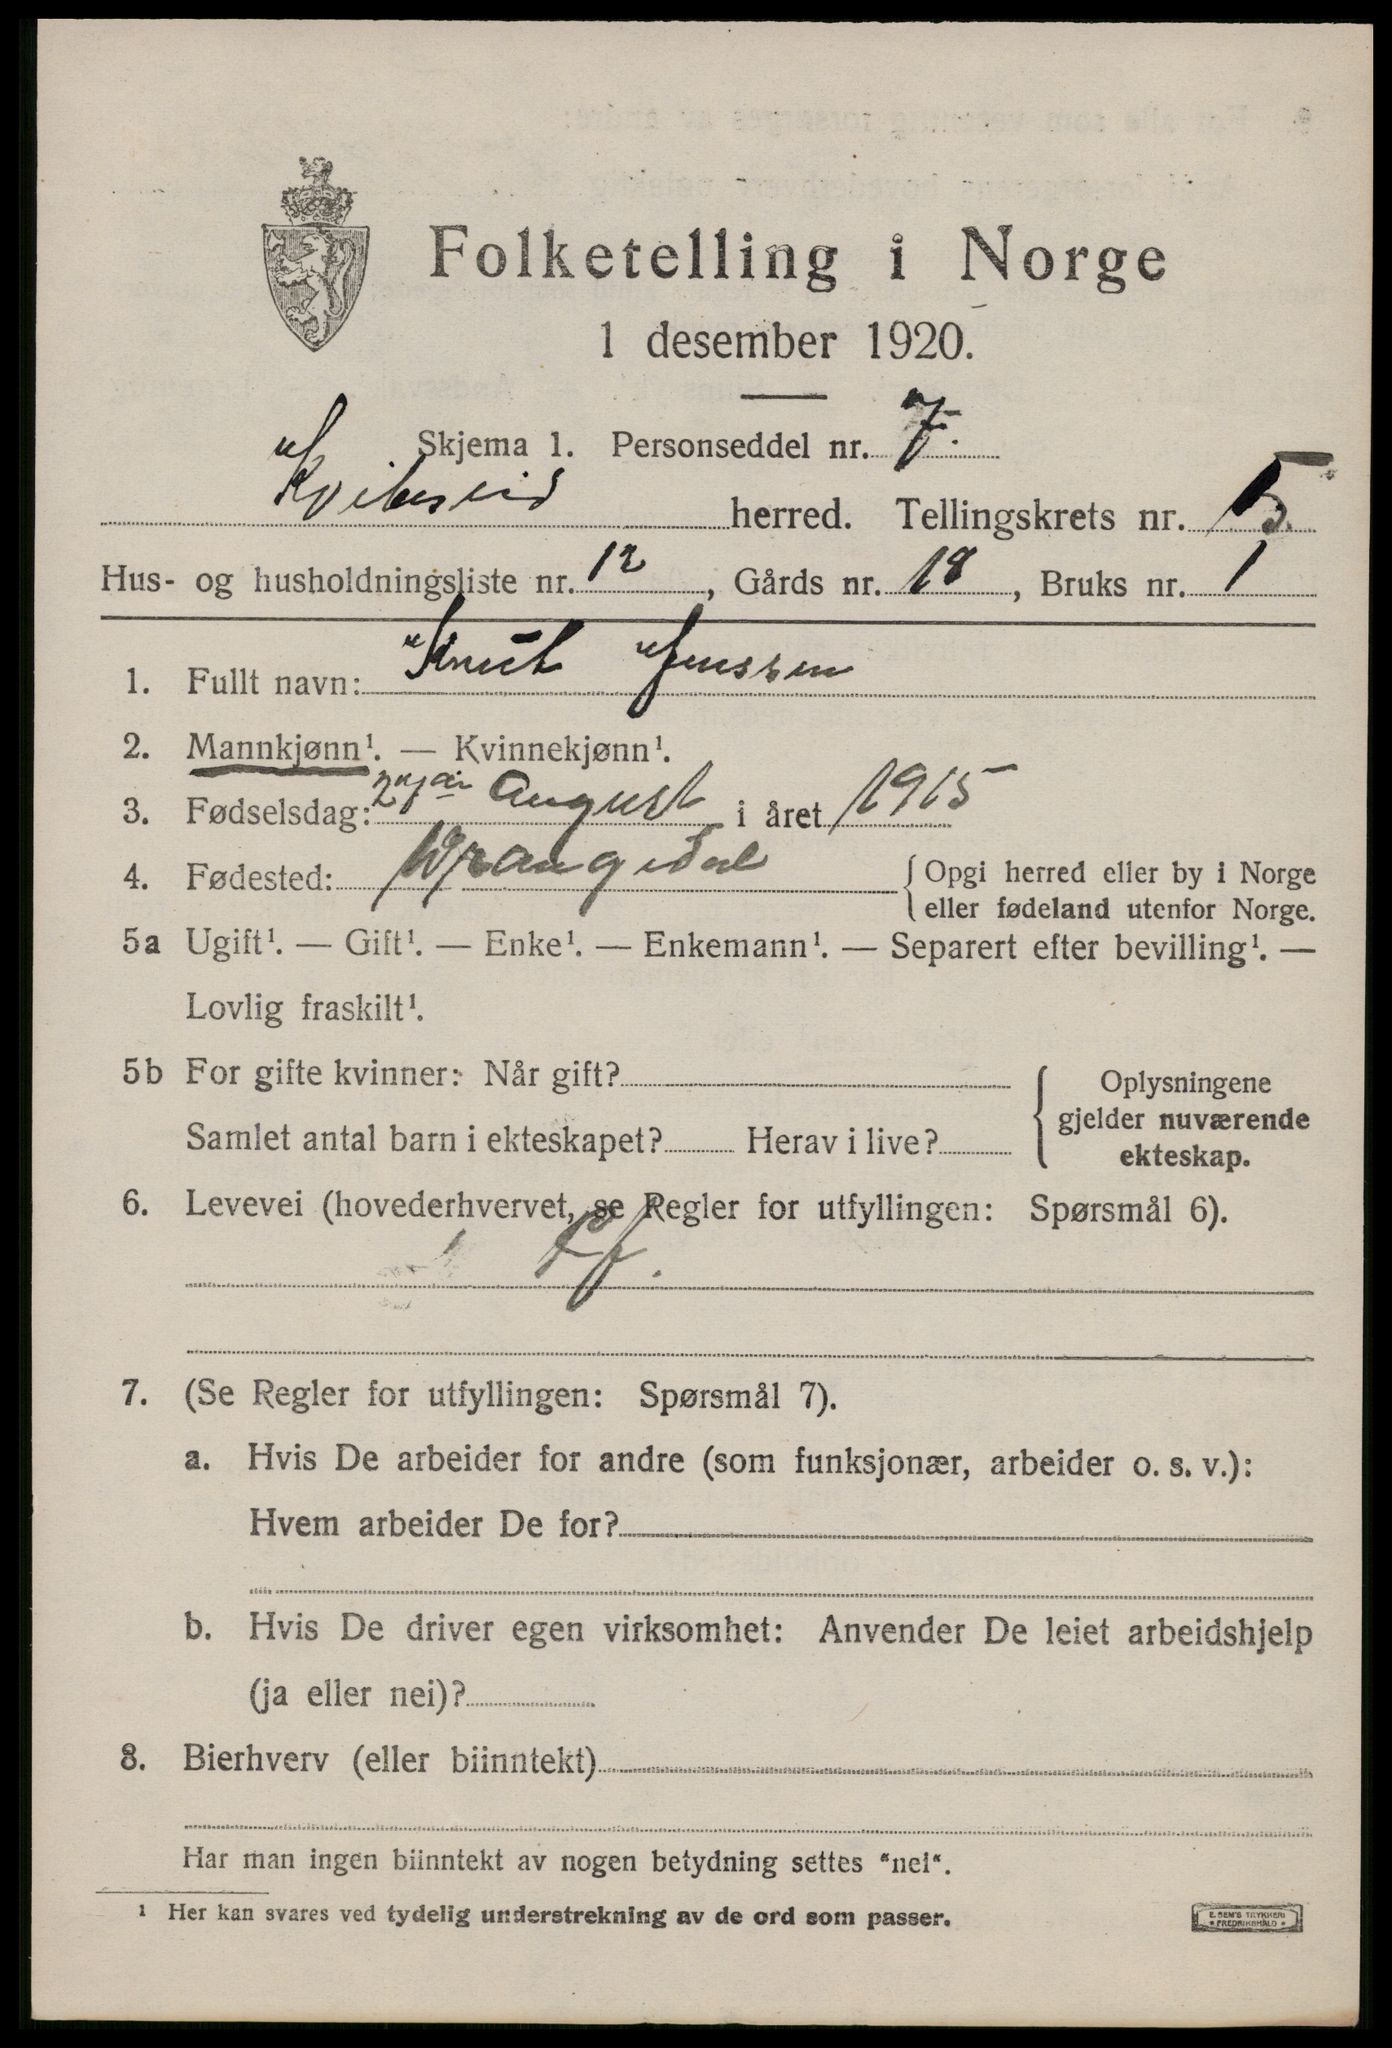 Folketelling i Norge
1 desember 1920.
Skjema 1. Personseddel nr. 7.
Kviteseid herred. Tellingskrets nr. 5.
Hus- og husholdningsliste nr. 12, Gårds nr. 18, Bruks nr. 1
1. Fullt navn: Knut Jenssen
2. Mannkjønn¹. — Kvinnekjønn¹.
3. Fødselsdag: August i året 1915
4. Fødested: Drangedal { Opgi herred eller by i Norge
eller fødeland utenfor Norge.
5a Ugift¹. — Gift¹. — Enke¹. — Enkemann¹. — Separert efter bevilling¹. —
Lovlig fraskilt¹.
5b For gifte kvinner: Når gift?
Samlet antal barn i ekteskapet? Herav i live?
{ Oplysningene
gjelder nuværende
ekteskap.
6. Levevei (hovederhvervet, se Regler for utfyllingen: Spørsmål 6).
7. (Se Regler for utfyllingen: Spørsmål 7).
a. Hvis De arbeider for andre (som funksjonær, arbeider o. s. v.):
Hvem arbeider De for?
b. Hvis De driver egen virksomhet: Anvender De leiet arbeidshjelp
(ja eller nei)?
8. Bierhverv (eller biinntekt)
Har man ingen biinntekt av nogen betydning settes "nei".
¹ Her kan svares ved tydelig understrekning av de ord som passer.
E. SEM'S TRYKKERI
* FREDRIKSHALD *